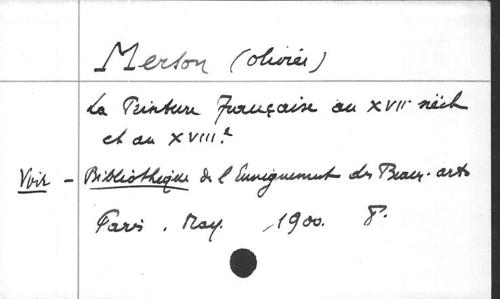 Merson (olivier)
La Peinture Française au XVIIe siècle
et au XVIIIe
Voir - Bibliothèque de l'Enseignement des Beaux-arts
Paris. May. 1900. 8°.